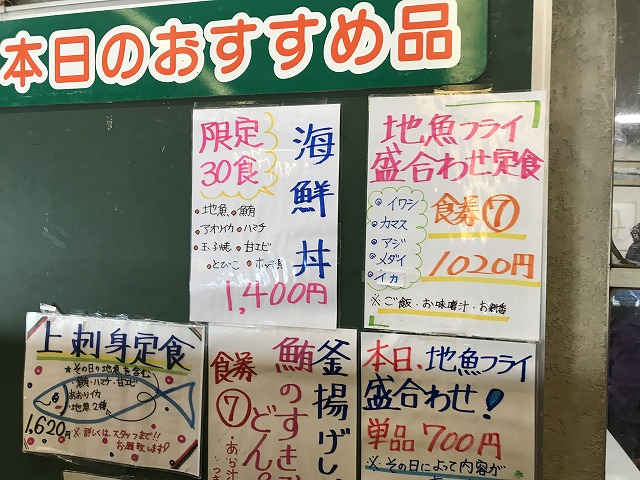 本日のおすすめ品
限定
30食
海鮮丼
・地魚・鮪
・アオリイカ・ハマチ
・玉子焼・甘エビ
・とびこ・ホッキ貝
1,400円
地魚フライ
盛合わせ定食
イワシ
カマス
アジ
メダイ
イカ
食券⑦
1020円
※ご飯・お味噌汁・お新香
上刺身定食
※その日の地魚も含む
・鮪・ハマチ・甘エビ
あおりイカ
・地魚2種
1,620円
※詳しくはスタッフまで!!
お願致します!
釜揚げし
鮪のすき
どん
食券
⑦
あか汁
本日、地魚フライ
盛合わせ!
単品700円
※その日によって内容が